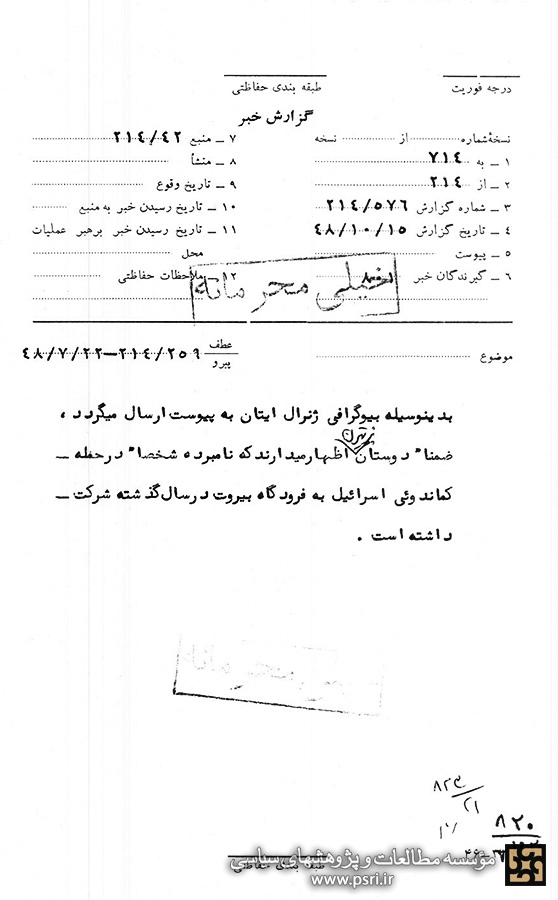 درجه فوریت
طبقه بندی حفاظتی
گزارش خبر
نسخهٔ شماره ............ از ............ نسخه
۱ ــ به ۷۱۴
۲ ــ از ۲۱۴
۳ ــ شماره گزارش ۲۱۴/۵۷۶
۴ ــ تاریخ گزارش ۴۸/۱۰/۱۵
۵ ــ پیوست
۶ ــ گیرندگان خبر
۷ ــ منبع ۲۱۴/۴۲
۸ ــ منشأ
۹ ــ تاریخ وقوع
۱۰ ــ تاریخ رسیدن خبر به منبع
۱۱ ــ تاریخ رسیدن خبر برهبر عملیات
محل
۱۲ ــ ملاحظات حفاظتی
خیلی محرمانه
موضوع
عطف
پیرو
۲۱۴/۲۵۹ــ۴۸/۷/۲۲
بدینوسیله بیوگرافی ژنرال ایتان به پیوست ارسال میگردد ،
ضمنا" دوستان اظهارمیدارند که نامبرده شخصا" در حمله ــ
کماندوئی اسرائیل به فرودگاه بیروت در سال گذشته شرکت ــ
داشته است .
۸۲۳
۲۱
۸۲۰
طبقه بندی حفاظتی
مؤسسه مطالعات و پژوهشهای سیاسی
www.psri.ir